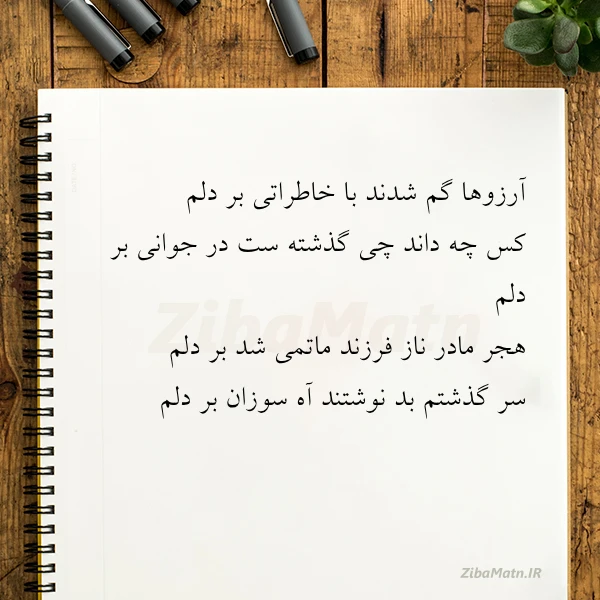 آرزوها گم شدند با خاطراتی بر دلم
کس چه داند چی گذشته ست در جوانی بر
دلم
هجر مادر ناز فرزند ماتمی شد بر دلم
سر گذشتم بد نوشتند آه سوزان بر دلم
ZibaMatn
ZibaMatn.IR